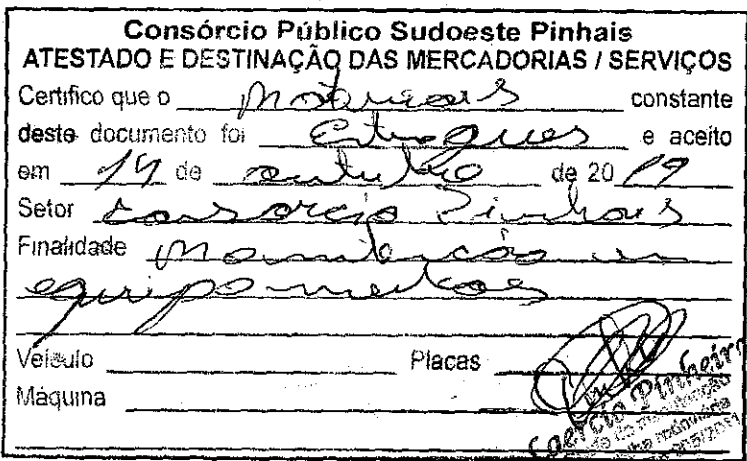 Consórcio Público Sudoeste Pinhais
ATESTADO E DESTINAÇÃO DAS MERCADORIAS / SERVIÇOS
Certifico que o Materiais constante
deste documento foi Entregues e aceito
em 14 de outubro de 2019
Setor Consorcio Pinhais
Finalidade Manutencão em
equipamentos
Veículo Placas
Máquina
Laercio Pinheiro